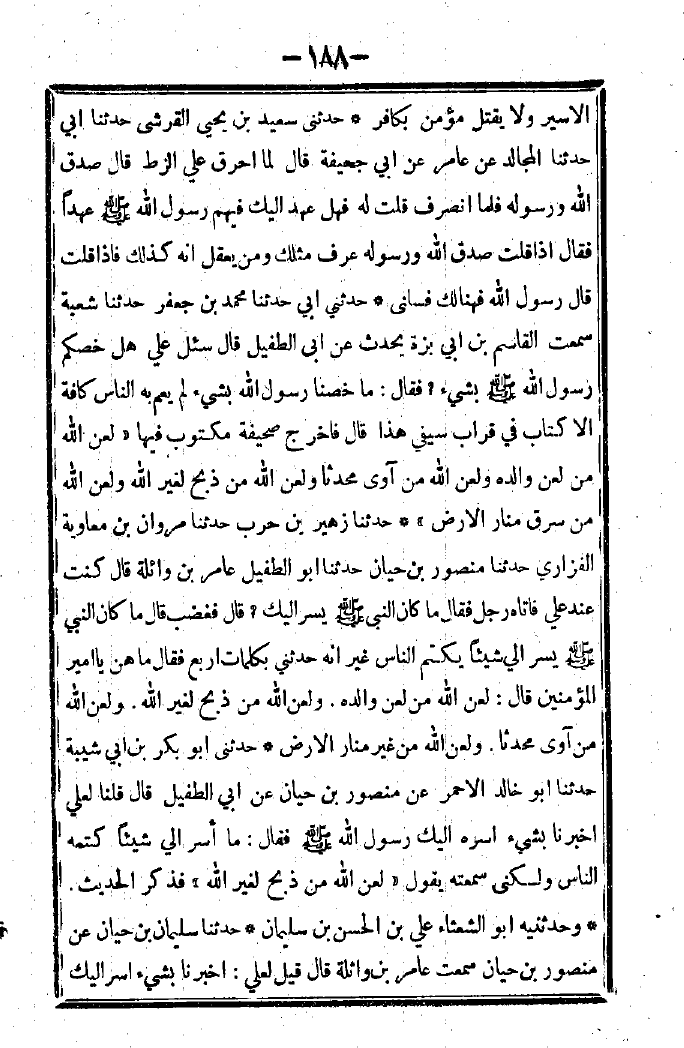 -١٨٨-
الاسير ولا يقتل مؤمن بكافر * حدثني سعيد بن يحيي القرشي حدثنا ابي
حدثنا المجالد عن عامر عن ابي جحيفة قال لما احرق علي الزط قال صدق
الله ورسوله فلما انصرف قلت له فهل عهد اليك فيهم رسول الله ﷺ عهداً
فقال اذا قلت صدق الله ورسوله عرف مثلك ومن يعقل انه كذلك فاذا قلت
قال رسول الله فهنالك فسلنى * حدثني ابي حدثنا محمد بن جعفر حدثنا شعبة
سمعت القاسم بن ابي بزة يحدث عن ابى الطفيل قال سئل علي هل خصكم
رسول الله ﷺ بشيء ؟ فقال : ما خصنا رسول الله بشيء لم يعم به الناس كافة
الا كتاب في قراب سيفي هذا قال فاخرج صحيفة مكتوب فيها « لعن الله
من لعن والده ولعن الله من آوى محدثا ولعن الله من ذبح لغير الله ولعن الله
من سرق منار الارض » * حدثنا زهير بن حرب حدثنا مروان بن معاوية
الفزاري حدثنا منصور بن حيان حدثنا ابو الطفيل عامر بن واثلة قال كنت
عند علي فاتاه رجل فقال ما كان النبي ﷺ يسر اليك ؟ قال فغضب قال ما كان النبي
ﷺ يسر الي شيئاً يكتم الناس غير انه حدثني بكلمات اربع فقال ما هن يا امير
المؤمنين قال : لعن الله من لعن والده . ولعن الله من ذبح لغير الله . ولعن الله
من آوى محدثا . ولعن الله من غير منار الارض * حدثنى ابو بكر بن ابي شيبة
حدثنا ابو خالد الاحمر عن منصور بن حيان عن ابي الطفيل قال قلنا لعلي
اخبرنا بشيء اسره اليك رسول الله ﷺ فقال : ما أسر الي شيئاً كتمه
الناس ولكنى سمعته يقول « لعن الله من ذبح لغير الله » فذكر الحديث .
* وحدثنيه ابو الشعثاء علي بن الحسن بن سليمان * حدثنا سليمان بن حيان عن
منصور بن حيان سمعت عامر بن واثلة قال قيل لعلي : اخبرنا بشيء اسر اليك